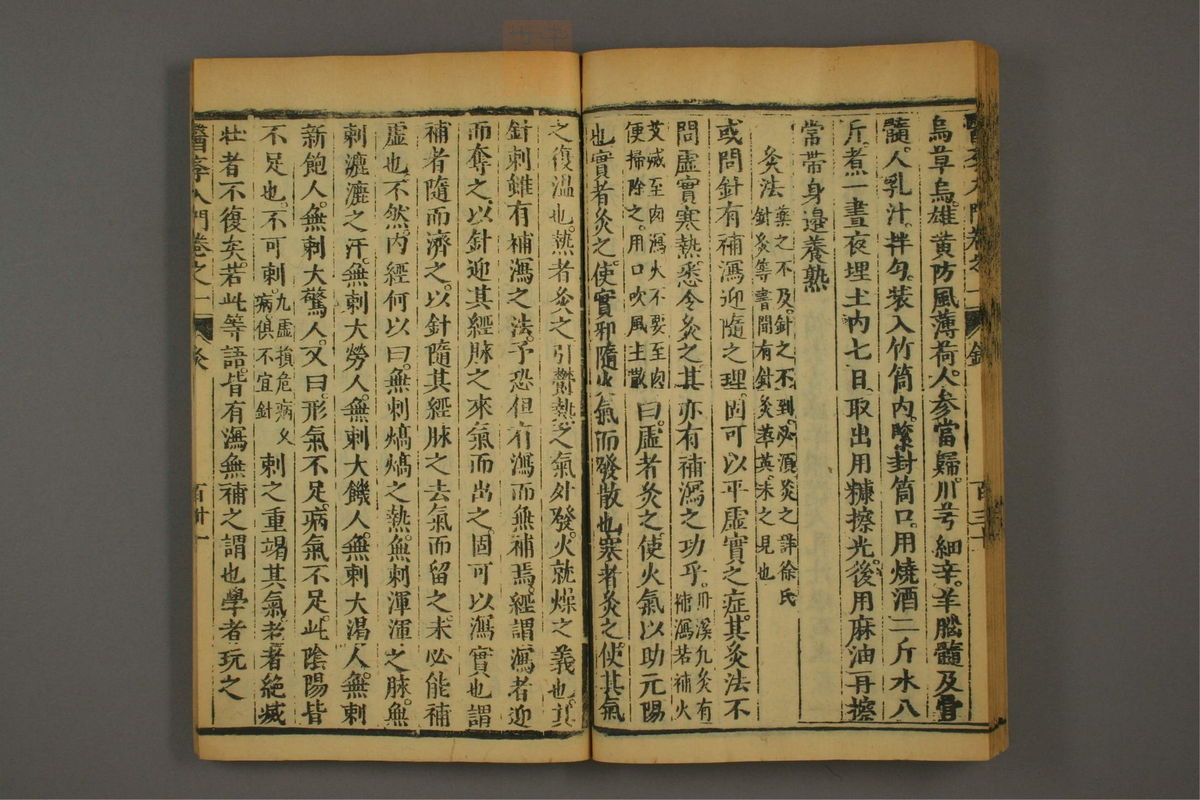 烏草烏。雄黃防風薄荷。人參當歸川芎細辛。羊腦髓及雪
髓。人乳汁拌勻。裝入竹筒內。緊封筒口。用燒酒二斤水八
斤。煮一晝夜埋土內七日取出用糠擦光。後用麻油再擦
常帶身邊養熟
灸法
藥之不及。針之不到。必須灸之。詳徐氏
針灸等書間有針灸萃英。未之見也
或問針有補瀉迎隨之理。固可以平虛實之症。其灸法不
問虛實寒熱。悉令灸之。其亦有補瀉之功乎。丹溪凡灸有補瀉若補火
艾滅至肉瀉火不要至肉便掃除之。用口吹風主散
曰。虛者灸之。使火氣以助元陽
也。實者灸之。使實邪隨火氣而發散也。寒者灸之。使其氣
之復溫也。熱者灸之。引鬱熱之氣外發。火就燥之義也。其
針刺雖有補瀉之法。予恐但有瀉而無補焉。經謂瀉者迎
而奪之。以針迎其經脉之來氣而出之。固可以瀉實也。謂
補者隨而濟之。以針隨其經脉之去氣而留之。未必能補
虛也。不然。內經何以曰。無刺熇熇之熱。無刺渾渾之脉。無
刺漉漉之汗。無刺大勞人。無刺大饑人。無刺大渴人。無刺
新飽人。無刺大驚人。又曰。形氣不足。病氣不足。此陰陽皆
不足也。不可刺。凡虛損危病久病俱不宜針刺之重竭其氣。老者絕滅
壯者不復矣。若此等語。皆有瀉無補之謂也學者玩之
醫學入門卷之一
灸
百卅一